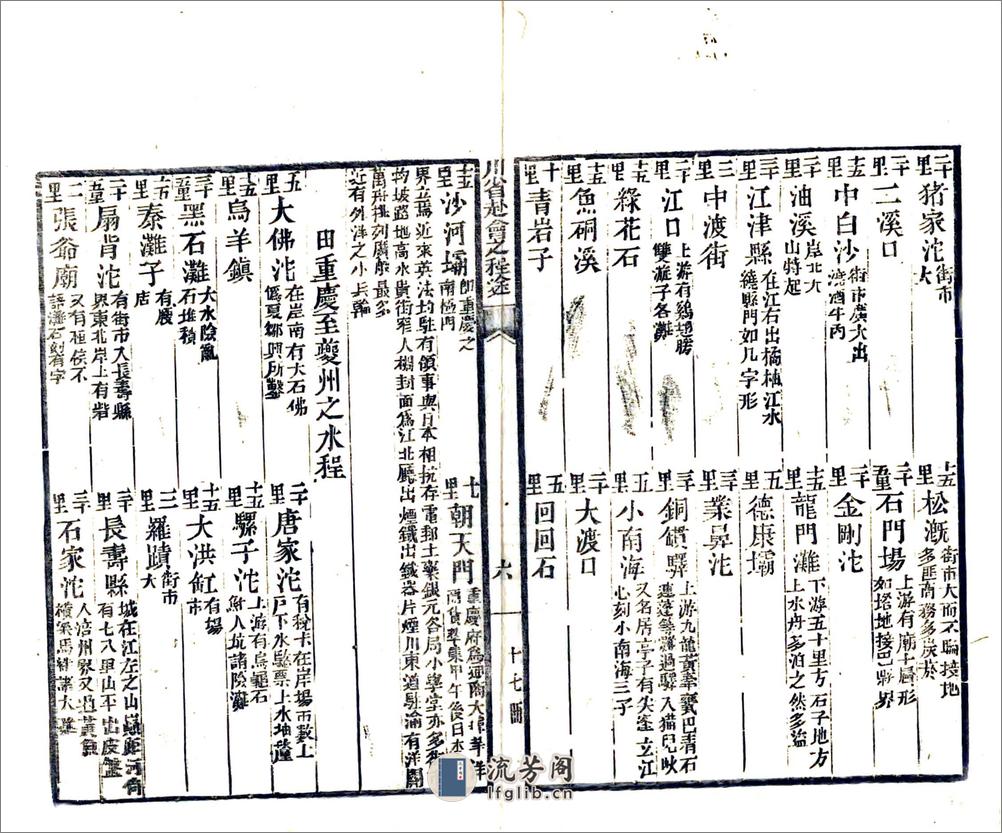 二十里 豬家沱 街市大
十五里 松溉 街市大而不騙接地多匪南務多炭菸
三十里 二溪口
石門場 上游有廟十層形如塔地接巴縣界
十五里 中白沙 街市廣大出酒牛肉
二十里 金剛沱
三十里 油溪 岸北九山特起
十五里 龍門灘 下游五十里方石子地方上水舟多泊之然多盜
三十里 江津縣 在江右出橘柚江水繞縣門如几字形
五里 德康壩
三里 中渡街
三十里 業鼻沱
二十里 江口 上游有鷄翅勝雙漩子各灘
三十里 銅鑵驛 上游九龍黃奉寶巴青石過驛入猫兒峽
三十里 綠花石
五里 小南海 又名居亭子有失蓬玄江心刻小南海三子
十五里 魚硐溪
二十里 大渡口
十里 青岩子
五里 回回石
川省赴會之程途 六 十七
十五里 沙河壩 即重慶之南極門
十里 朝天門 重慶府為通商大埠 甲午後日本
界立焉近來英法均駐有領事與日本相抗存電郵土藥銀元各局小學堂亦多
均坡路地高水貴街窄人稠封面為江北廳出煙鐵出鐵器片煙川東道駐渝有洋關
近有外洋之小兵輪
由重慶至夔州之水程
五里 大佛沱 在岸南有大石佛僞夏鄒興所鑿
二十里 唐家沱 有稅卡在岸場百數上戶下水驗票上水抽釐
十五里 烏羊鎮
十五里 騾子沱 上游有烏龜石鮓人坑諸險灘
三十里 黑石灘 大水險亂石堆積
十五里 大洪缸 有場
秦灘子 有廠店
三里 羅蹟 街市大
扇背沱 有街市入長壽縣界東北岸上有砦
三十里 長壽縣 城在江左之山
二里 張爺廟 又有桓侯不語灘石刻有字
三十里 石家沱 入涪州界
流芳阁
lfglib.cn